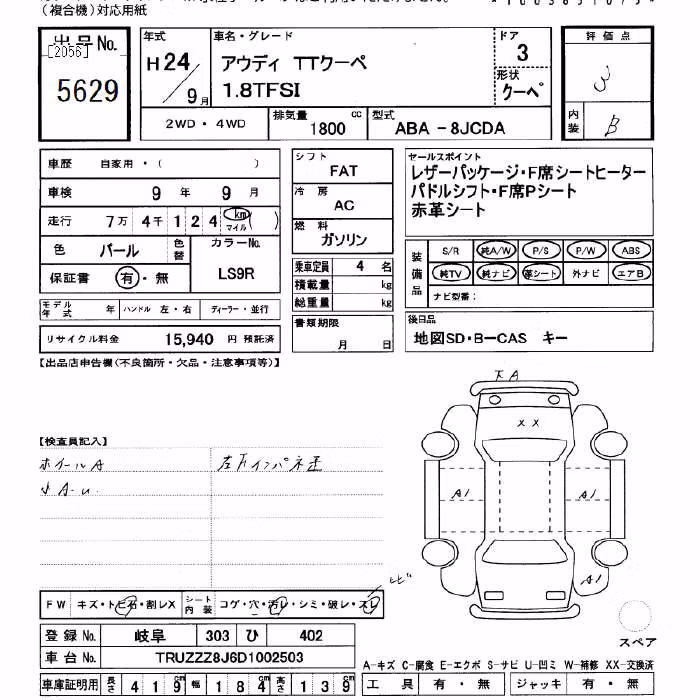 （複合機）対応用紙
出品No.
[2056]
5629
年式
H24/9月
車名・グレード
アウディ TTクーペ
1.8TFSI
ドア
3
形状
クーペ
評価点
3
内装
B
2WD・4WD
排気量
1800 cc
型式
ABA－8JCDA
車歴 自家用・( )
車検 9年 9月
走行 7万 4千 1 2 4 km マイル ( )
色 パール 色替
カラーNo.
LS9R
保証書 有・無
モデル年式 年 ハンドル 左・右 ディーラー・並行
リサイクル料金 15,940 円 預託済
シフト
FAT
冷房
AC
燃料
ガソリン
乗車定員 4 名
積載量 kg
総重量 kg
書類期限
月 日
セールスポイント
レザーパッケージ・F席シートヒーター
パドルシフト・F席Pシート
赤革シート
装備品
S/R 純A/W P/S P/W ABS
純TV 純ナビ 革シート 外ナビ エアB
ナビ型番：
後日品
地図SD・B－CAS キー
【出品店申告欄(不良箇所・欠品・注意事項等)】
【検査員記入】
ホイールA
小A-u
FW キズ・トビ石・割レX
シート内装 コゲ・穴・汚レ・シミ・破レ・スレ
登録No. 岐阜 303 ひ 402
車台No. TRUZZZ8J6D1002503
車庫証明用 長さ 419 幅 184 高さ 139
A
XX
A1
A1
A1
スペア
A－キズ C－腐食 E－エクボ S－サビ U－凹ミ W－補修 XX－交換済
工具 有・無 ジャッキ 有・無